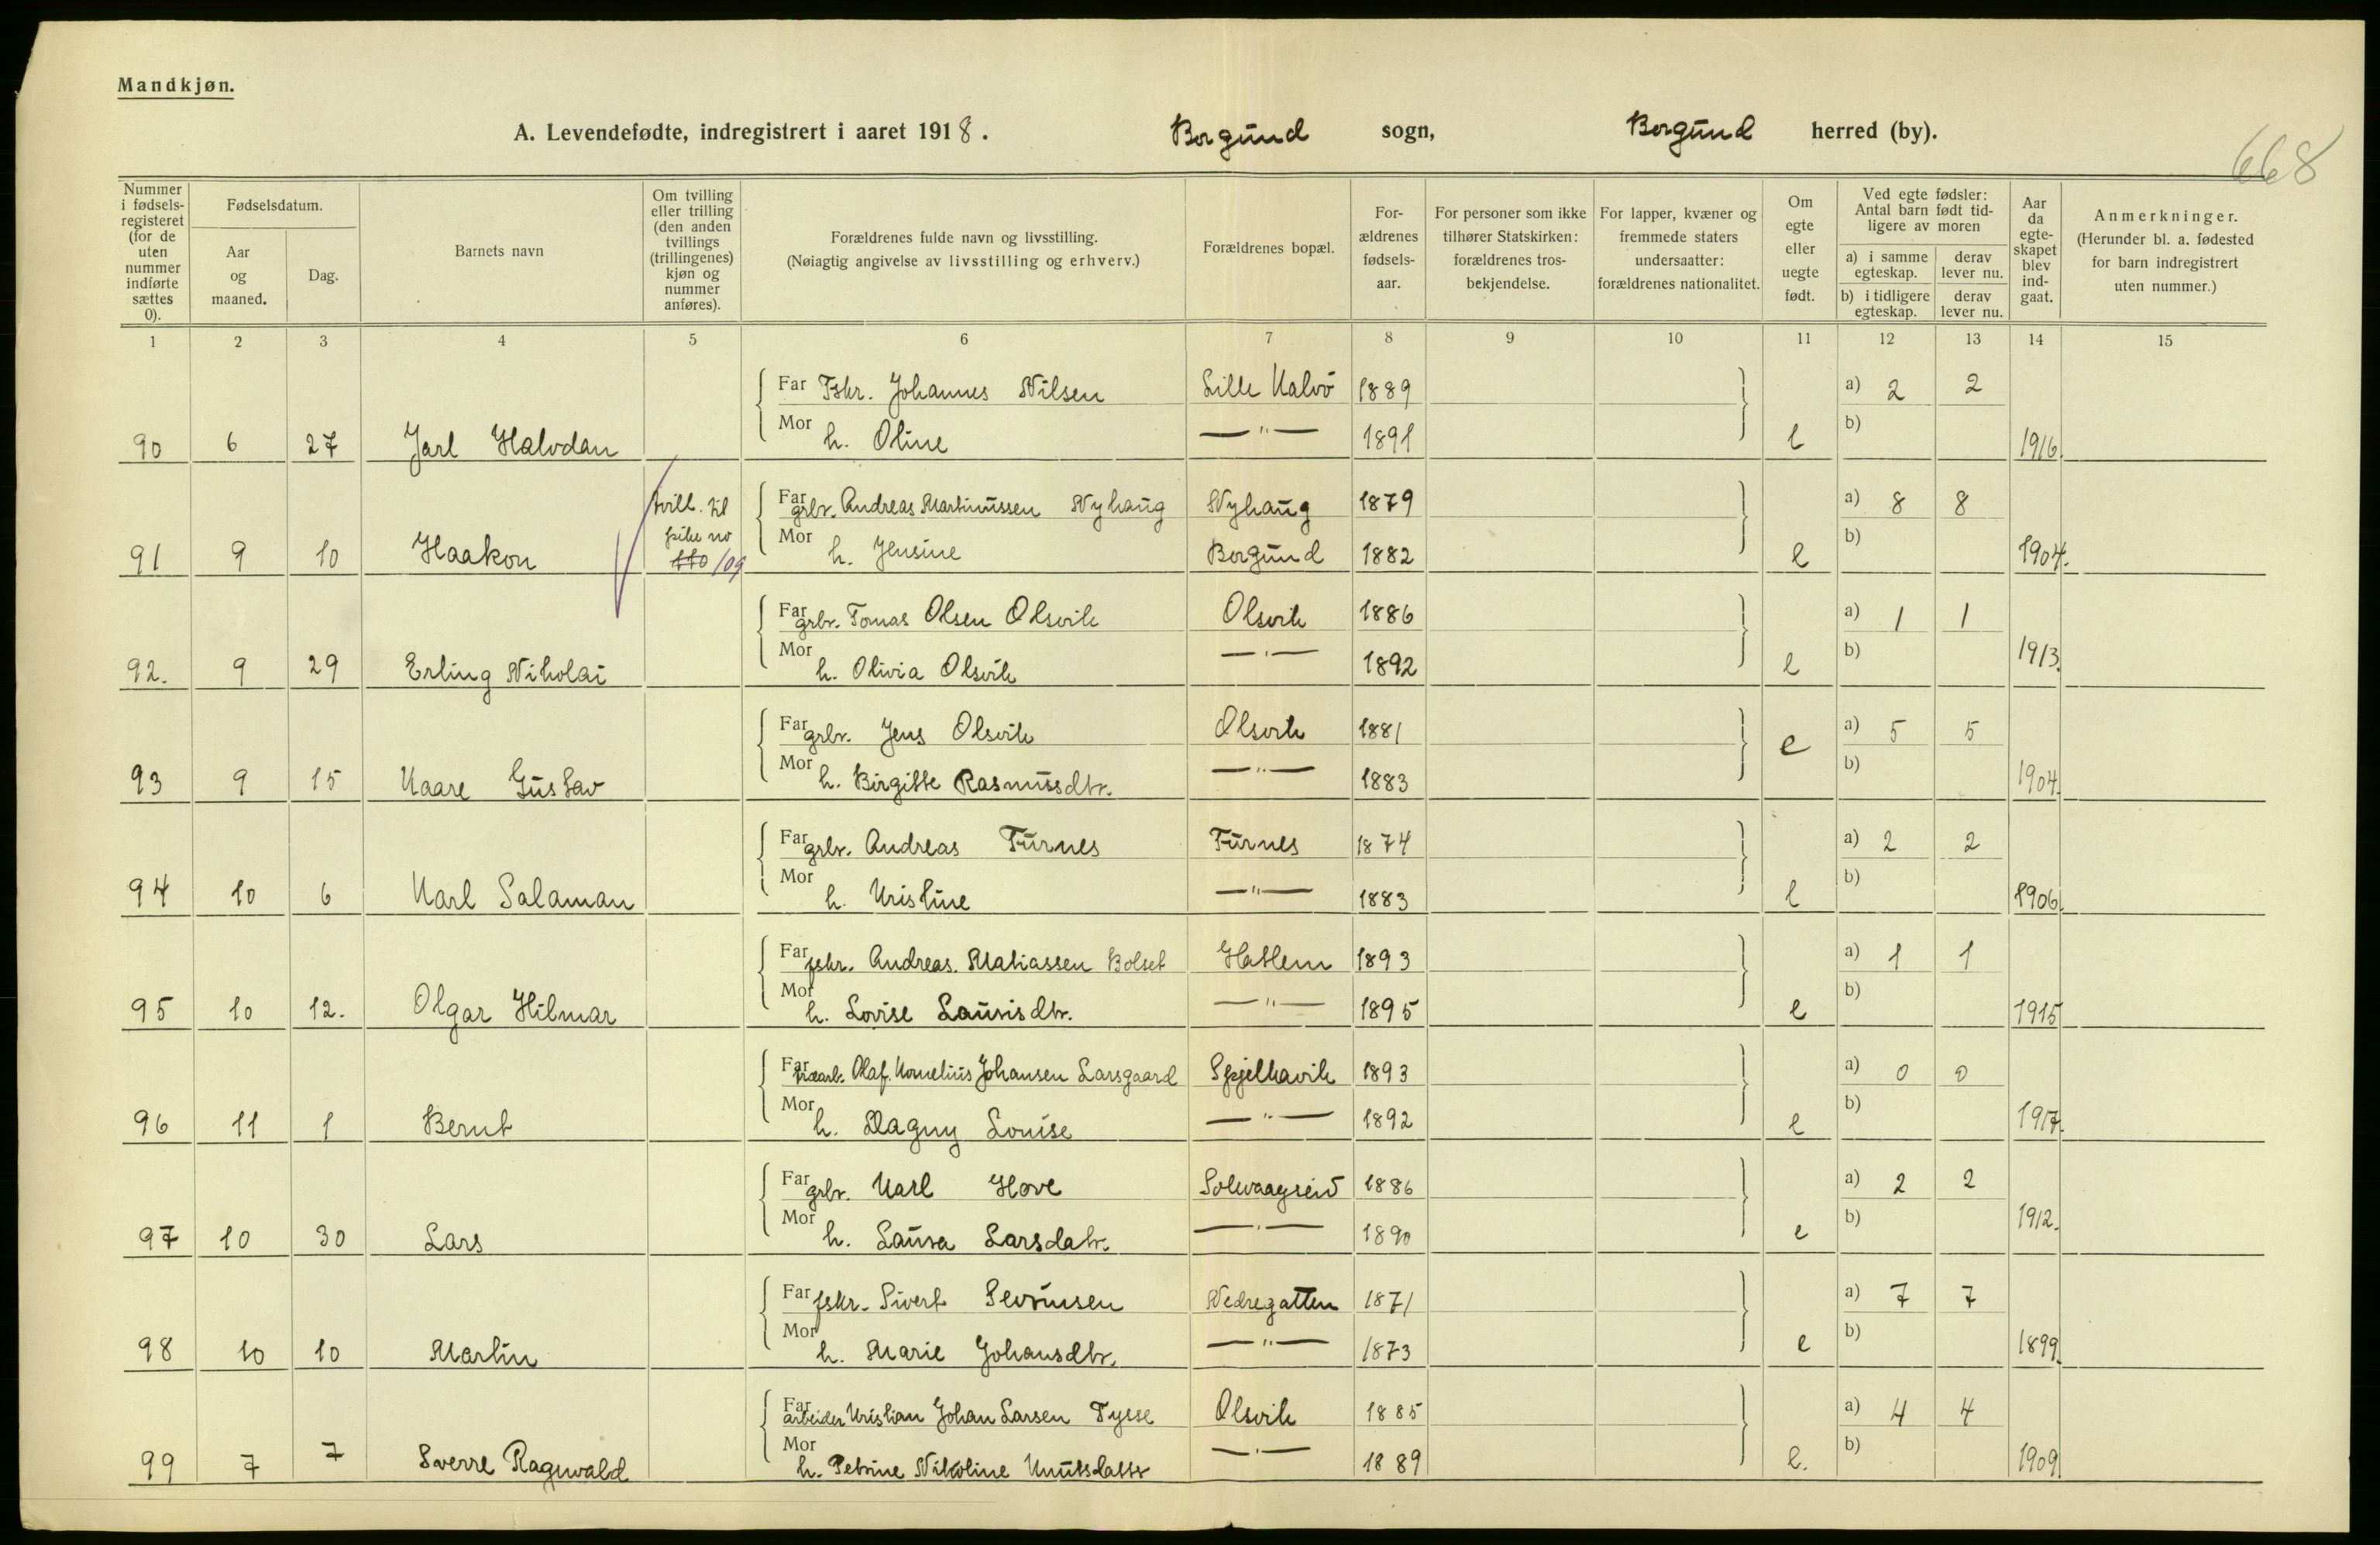 Mandkjøn.
A. Levendefødte, indregistrert i aaret 1918. Borgund sogn, Borgund herred (by).
668
Nummer i fødselsregisteret (for de uten nummer indførte sættes 0).
Fødselsdatum.
Aar og maaned.
Dag.
Barnets navn
Om tvilling eller trilling (den anden tvillings (trillingenes) kjøn og nummer anføres).
Forældrenes fulde navn og livsstilling.
(Nøiagtig angivelse av livsstilling og erhverv.)
Forældrenes bopæl.
Forældrenes fødselsaar.
For personer som ikke tilhører Statskirken: forældrenes trosbekjendelse.
For lapper, kvæner og fremmede staters undersaatter: forældrenes nationalitet.
Om egte eller uegte født.
Ved egte fødsler: Antal barn født tidligere av moren
a) i samme egteskap. derav lever nu.
b) i tidligere egteskap. derav lever nu.
Aar da egteskapet blev indgaat.
Anmerkninger.
(Herunder bl. a. fødested for barn indregistrert uten nummer.)
1 2 3 4 5 6 7 8 9 10 11 12 13 14 15
Far Fskr. Johannes Nilsen Lille Kalvö 1889 a) 2 2
90 6 27 Jarl Halvdan Mor h. Oline —"— 1891 e b) 1916.
tvill. til Far grbr. Andreas Martinussen Nyhaug Nyhaug 1879 a) 8 8
pike no
91 9 10 Haakon 110/09 Mor h. Jensine Borgund 1882 e b) 1904.
Far grbr. Tomas Olsen Olsvik Olsvik 1886 a) 1 1
92. 9 29 Erling Nikolai Mor h. Olivia Olsvik —"— 1892 e b) 1913.
Far grbr. Jens Olsvik Olsvik 1881 e a) 5 5
93 9 15 Kaare Gustav Mor h. Birgitte Rasmusdtr. —"— 1883 b) 1904.
Far grbr. Andreas Furnes Furnes 1874 a) 2 2
94 10 6 Karl Salaman Mor h. Kristine —"— 1883 e b) 1906.
Far fskr. Andreas. Matiassen Bolset Hatlem 1893 a) 1 1
95 10 12. Olgar Hilmar Mor h. Lovise Laurisdtr. —"— 1895 e b) 1915
Far Olaf Kornelius Johansen Larsgaard Spjelkavik 1893 a) 0 0
96 11 1 Bernt Mor h. Dagny Louise —"— 1892 e b) 1917.
Far grbr. Karl Hove Solevaagseid 1886 a) 2 2
97 10 30 Lars Mor h. Laura Larsdatr. —"— 1890 e b) 1912.
Far fskr. Sivert Sevrinsen Nedregatten 1871 a) 7 7
98 10 10 Martin Mor h. Marie Johansdtr. —"— 1873 e b) 1899.
Far arbeider Kristian Johan Larsen Tysse Olsvik 1885 a) 4 4
99 7 7 Sverre Ragnvald Mor h. Petrine Nikoline Knutsdattr —"— 1889 e. b) 1909.